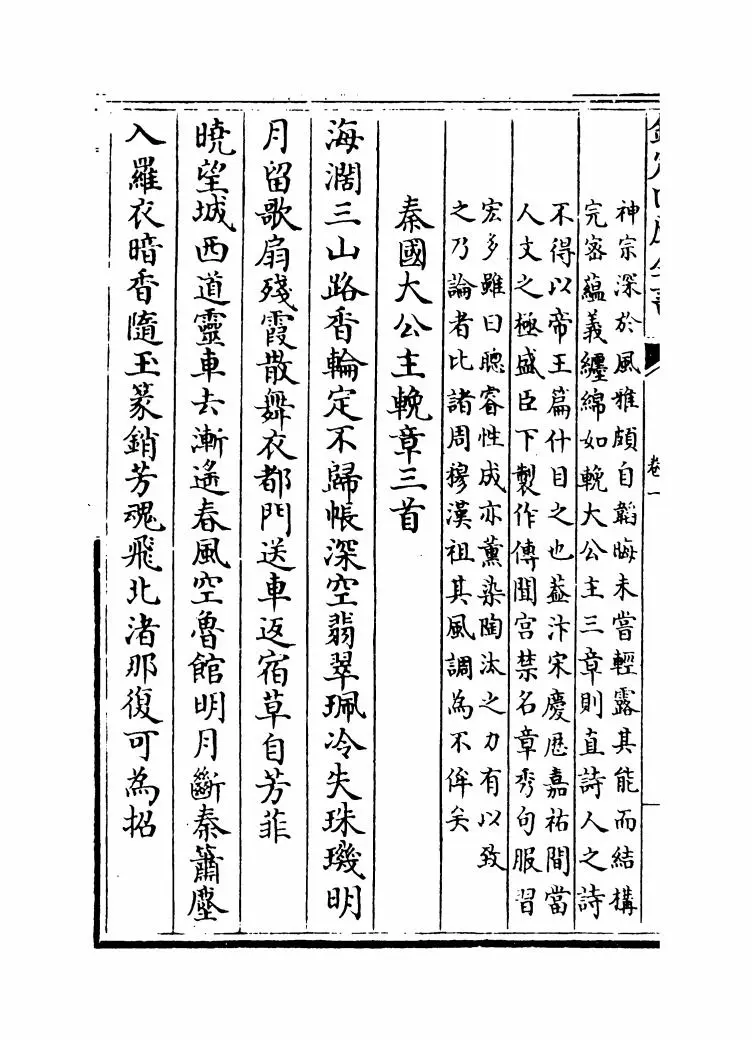 欽定四庫全書
卷一
神宗深於風雅頗自韜晦未嘗輕露其能而結構
完密蘊義纏綿如輓大公主三章則直詩人之詩
不得以帝王篇什目之也葢汴宋慶厯嘉祐間當
人文之極盛臣下製作傳聞宫禁名章秀句服習
宏多雖曰聰睿性成亦薰染陶汰之力有以致
之乃論者比諸周穆漢祖其風調為不侔矣
秦國大公主輓章三首
海濶三山路香輪定不歸帳深空翡翠珮冷失珠璣明
月留歌扇殘霞散舞衣都門送車返宿草自芳菲
曉望城西道靈車去漸遙春風空魯館明月斷秦簫塵
入羅衣暗香隨玉篆銷芳魂飛北渚那復可為招